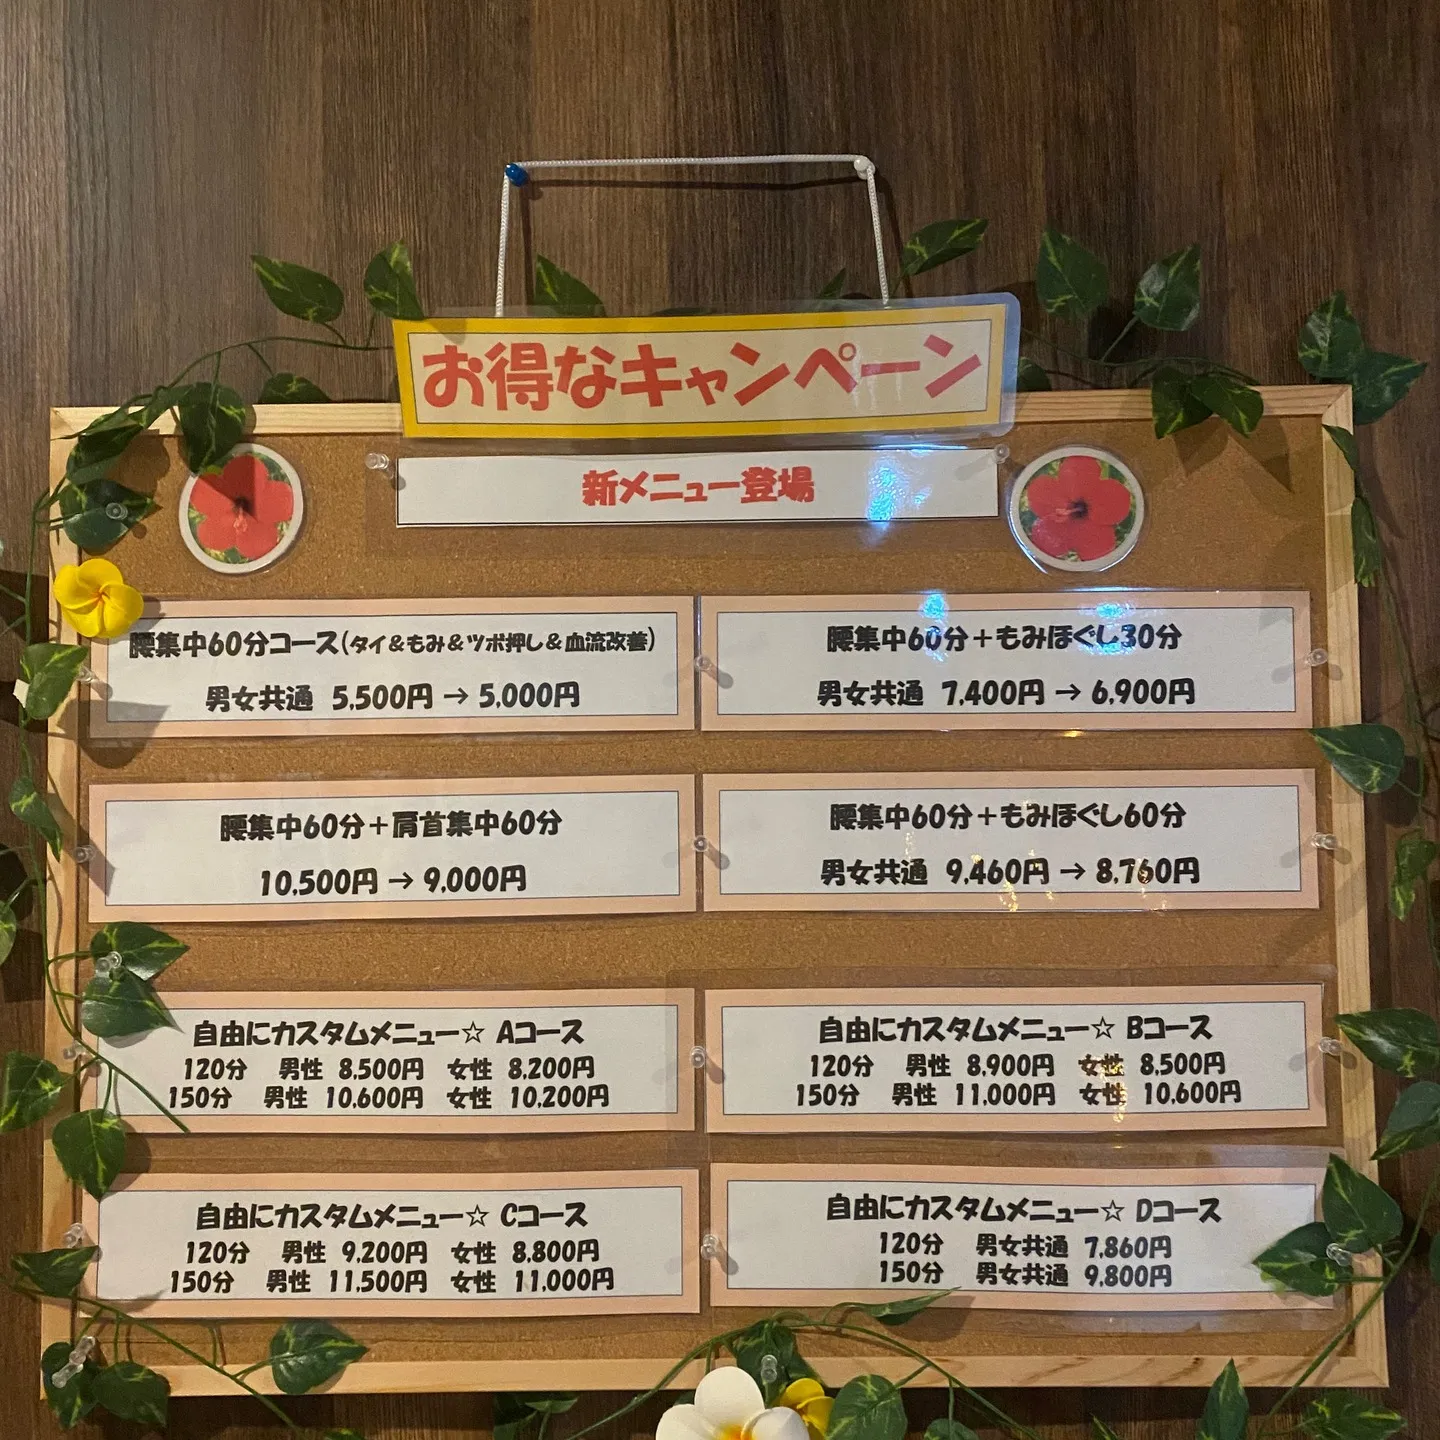 お得なキャンペーン
新メニュー登場
腰集中60分コース(タイ&もみ&ツボ押し&血流改善)
男女共通 5,500円 → 5,000円
腰集中60分+もみほぐし30分
男女共通 7,400円 → 6,900円
腰集中60分+肩首集中60分
10,500円 → 9,000円
腰集中60分+もみほぐし60分
男女共通 9,460円 → 8,760円
自由にカスタムメニュー☆ Aコース
120分 男性 8,500円 女性 8,200円
150分 男性 10,600円 女性 10,200円
自由にカスタムメニュー☆ Bコース
120分 男性 8,900円 女性 8,500円
150分 男性 11,000円 女性 10,600円
自由にカスタムメニュー☆ Cコース
120分 男性 9,200円 女性 8,800円
150分 男性 11,500円 女性 11,000円
自由にカスタムメニュー☆ Dコース
120分 男女共通 7,860円
150分 男女共通 9,800円